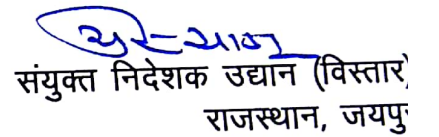 संयुक्त निदेशक उद्यान (विस्तार)
राजस्थान, जयपुर